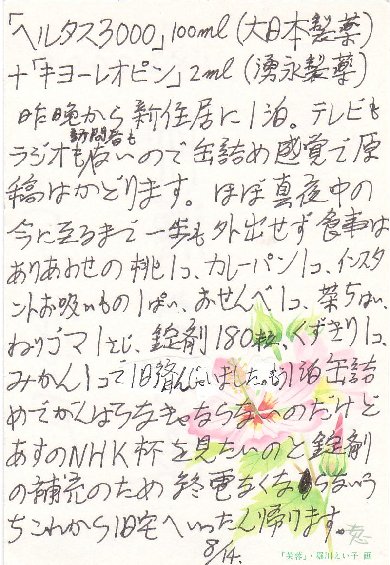 「ヘルタス3000」100ml(大日本製薬)
+「キヨーレオピン」2ml(湧永製薬)
昨晩から新住居に1泊。テレビも
訪問者も
ラジオも ないので缶詰め感覚で原
稿はかどります。ほぼ真夜中の
今に至るまで一歩も外出せず食事は
ありあわせの桃1コ、カレーパン1コ、インスタ
ントお吸いもの1ぱい、おせんべ1コ、茶ちない
ねりゴマ1さじ、錠剤180粒、くずきり1コ、
みかん1コで1日済んじゃいました。もう1泊缶詰
めでがんばらなきゃならないのだけど
あすのNHK杯を見たいのと錠剤
の補充のため終電なくならないう
ちこれから旧宅へいったん帰ります。
8/14.
「芙蓉」・堀川えい子 画